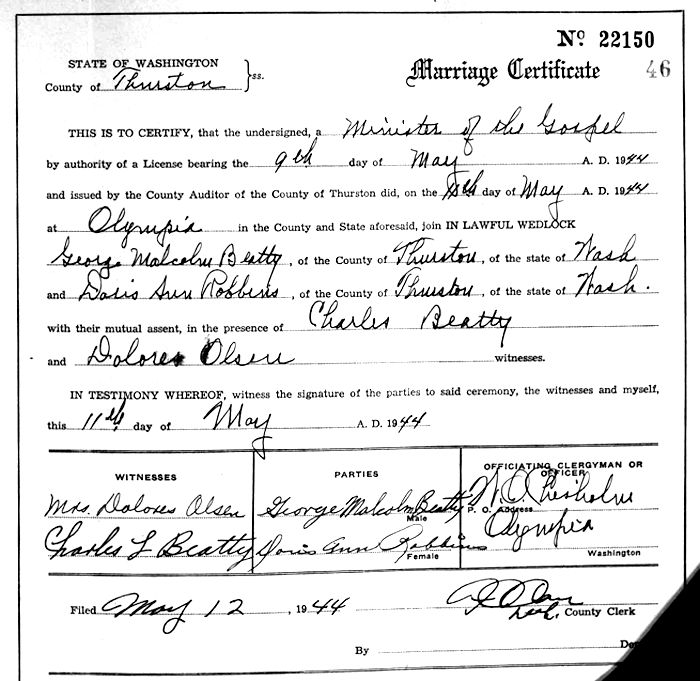 Nº 22150
STATE OF WASHINGTON
County of Thurston } ss.
Marriage Certificate 46
THIS IS TO CERTIFY, that the undersigned, a Minister of the Gospel
by authority of a License bearing the 9th day of May A. D. 1944
and issued by the County Auditor of the County of Thurston did, on the day of May A. D. 1944
at Olympia in the County and State aforesaid, join IN LAWFUL WEDLOCK
George Malcolm Beatty, of the County of Thurston, of the state of Wash
and Doris Ann Robbins, of the County of Thurston, of the state of Wash.
with their mutual assent, in the presence of Charles Beatty
and Dolores Olsen witnesses.
IN TESTIMONY WHEREOF, witness the signature of the parties to said ceremony, the witnesses and myself,
this 11th day of May A. D. 1944
WITNESSES
Mrs. Dolores Olsen
Charles L Beatty
PARTIES
George Malcolm Beatty
Male
Doris Ann Robbins
Female
OFFICIATING CLERGYMAN OR
OFFICER
Chisholm
P. O. Address
Olympia
Washington
Filed May 12, 1944
County Clerk
By